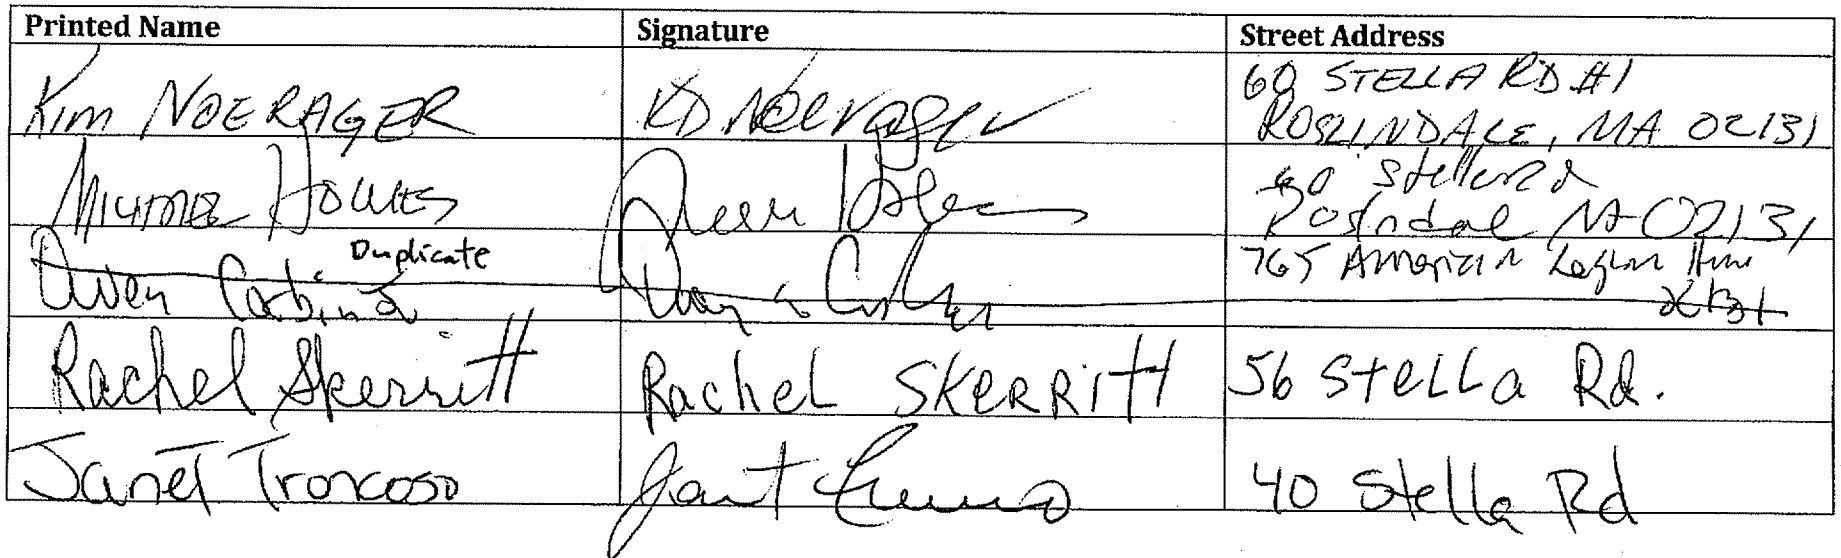 Printed Name Signature Street Address
Kim NOERAGER KD Noerager 60 STELLA RD #1
ROSLINDALE, MA 02131
60 Stella Rd
Roslndale MA 02131
Duplicate
Owen 765 American Legion Hwy
Rachel Skerritt RacheL SKERRitt 56 SteLLa Rd.
Janet Troncoso Janet 40 Stella Rd